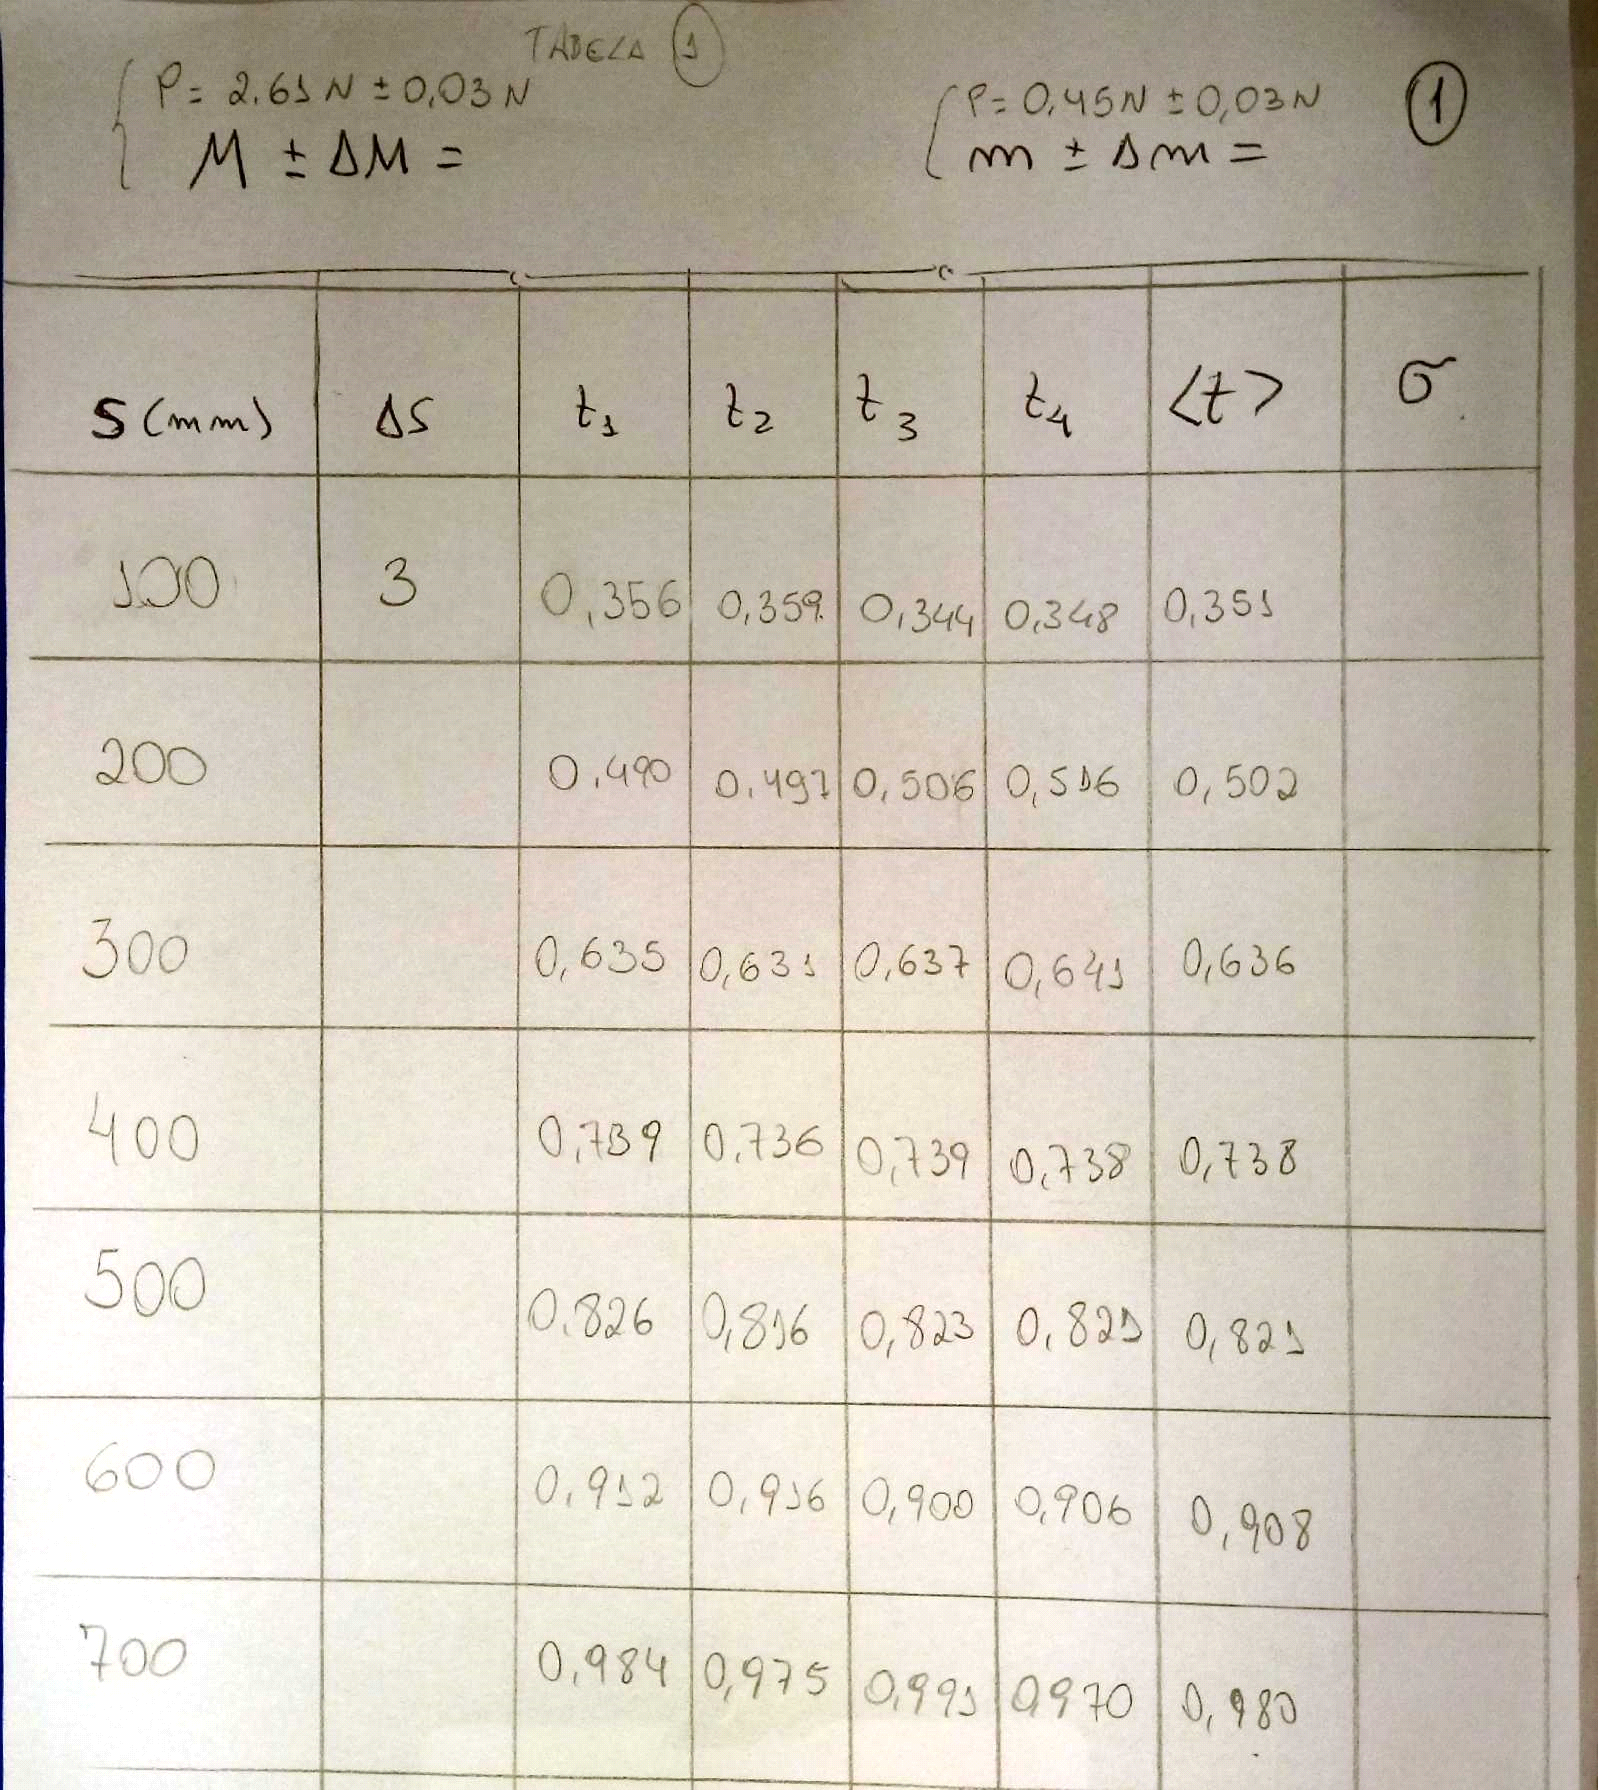 TABELA 1
P = 2.61 N ± 0,03 N
M ± ΔM =
P = 0,45 N ± 0,03 N
m ± Δm =
1
S (mm) ΔS t1 t2 t3 t4 <t> σ
100 3 0,356 0,359 0,344 0,348 0,351
200 0.490 0.497 0,506 0,516 0,502
300 0,635 0,631 0,637 0,641 0,636
400 0,739 0,736 0,739 0,738 0,738
500 0.826 0,816 0,823 0,821 0,821
600 0,912 0,916 0,900 0,906 0,908
700 0,984 0,975 0,991 0,970 0,980